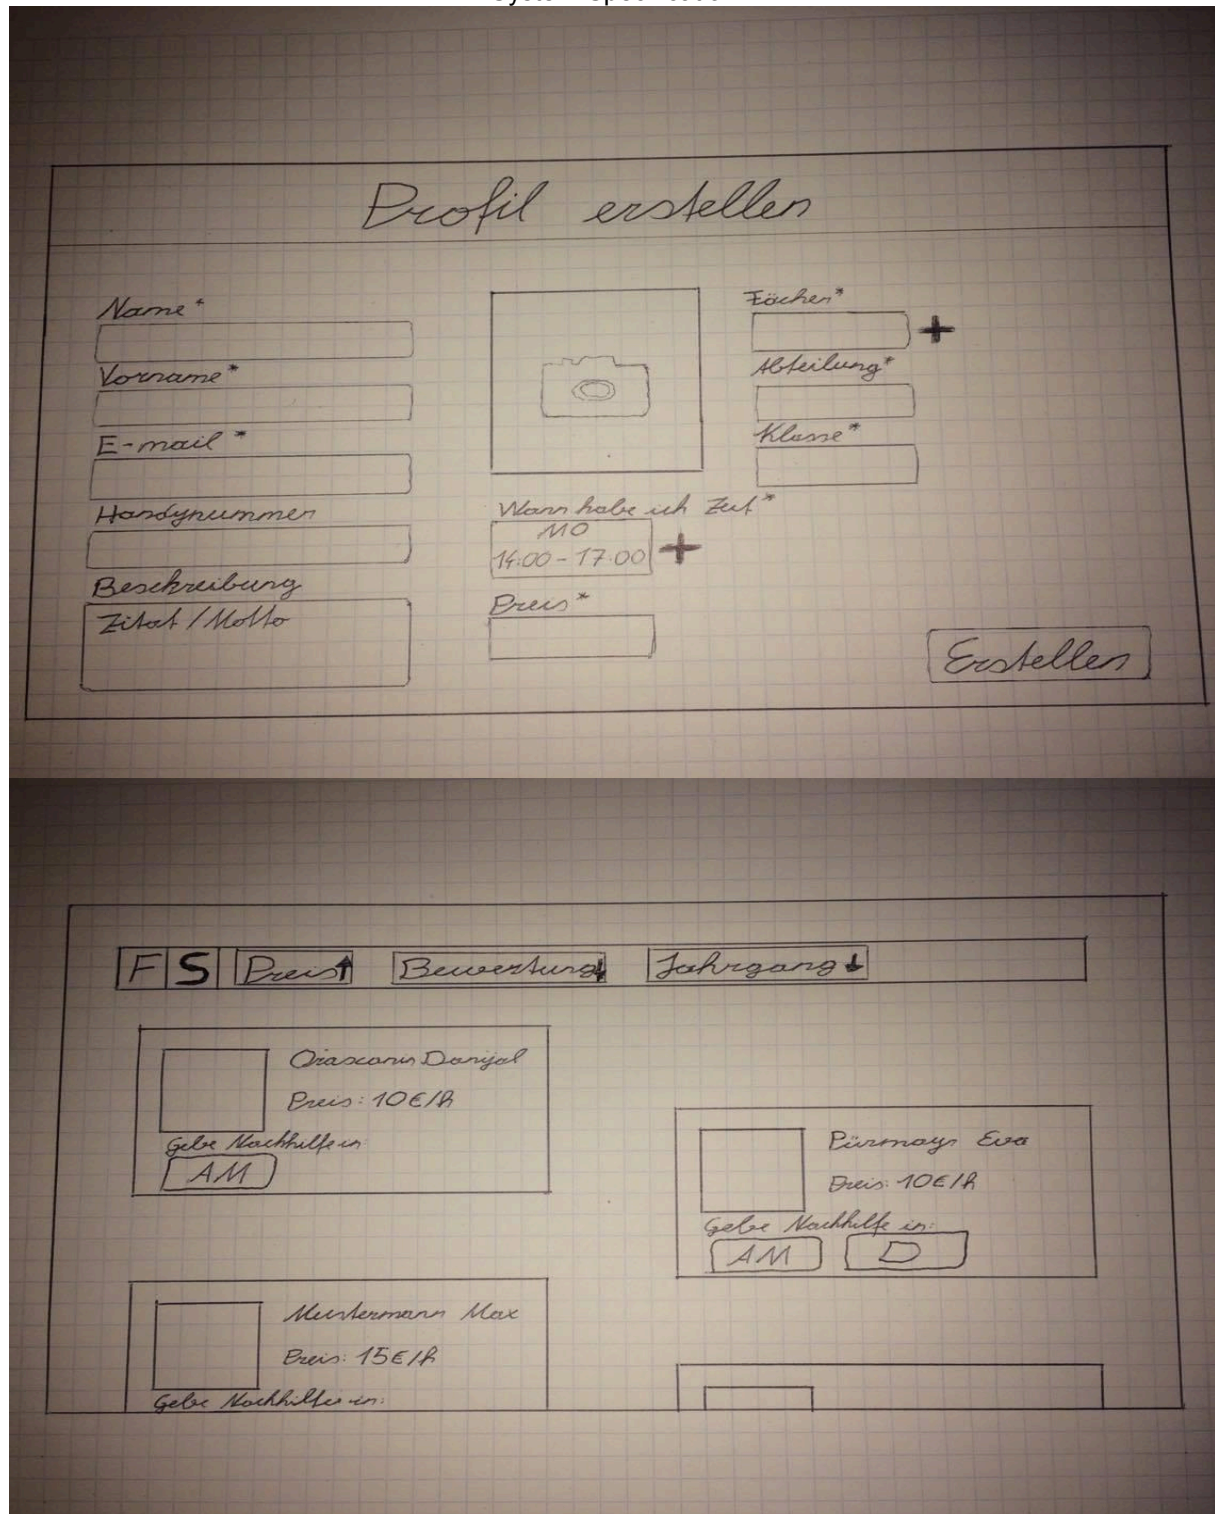 System Specification
Profil erstellen
Name*
Vorname*
E-mail*
Handynummer
Beschreibung
Zitat / Motto
Wann habe ich Zeit*
MO
14:00 - 17:00 +
Preis*
Fächer*
+
Abteilung*
Klasse*
Erstellen
F S Preis↑ Bewertung↓ Jahrgang↓
Danijal
Preis: 10€/h
Gebe Nachhilfe in
AM
Eva
Preis: 10€/h
Gebe Nachhilfe in:
AM D
Mustermann Max
Preis: 15€/h
Gebe Nachhilfe in: